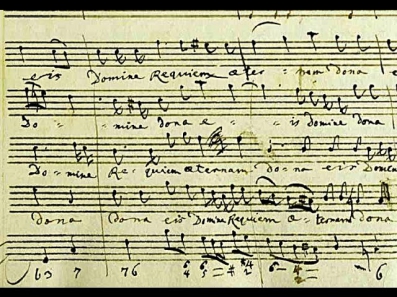 eis Domine Requiem æter - nam dona e
Do - - mine dona e - - is Domine dona
Do - mine Re - quiem æternam Do - na eis Domine
dona dona eis Domine Requiem æ - ternam dona
6 3 7 7 6 6 4 6 5 4 4 2 6 4 2 6